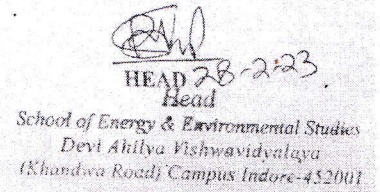 HEAD 28-2-23
Head
School of Energy & Environmental Studies
Devi Ahilya Vishwavidyalaya
(Khandwa Road) Campus Indore-452001